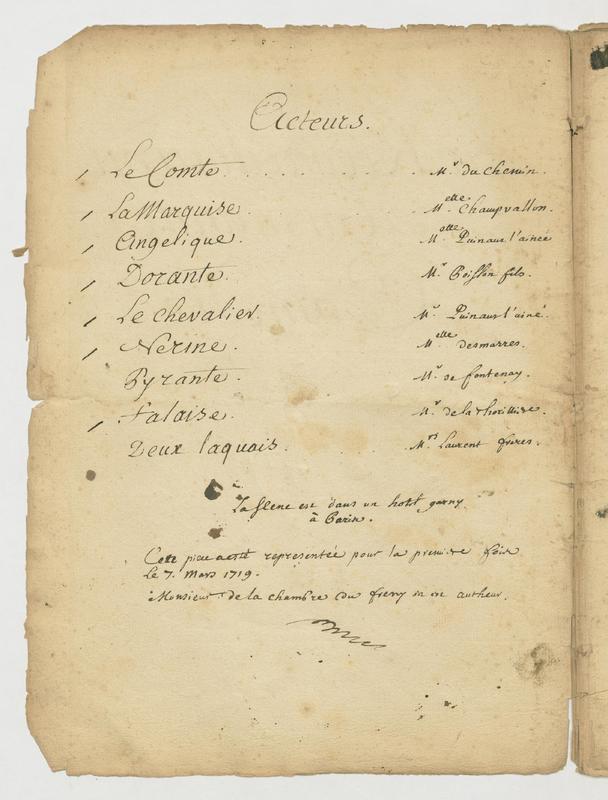 Acteurs.
Le Comte. . . . . . . . . Mr. du chemin.
La Marquise. . . . Melle. Champvallon.
Angelique. Melle. Quinaut l'ainée
Dorante. Mr. Poisson fils.
Le chevalier. Mr. Quinaut l'ainé.
Nerine. Melle. desmarres.
Pyrante. Mr. de fontenay.
Falaise. Mr. de la thorilliere.
Deux laquais. . . . Mrs. Laurent freres.
La scene est dans un hotel garny
à Paris.
Cette piece a esté representée pour la premiere fois
le 7. Mars 1719.
Monsieur de la chambre du freny en autheur.